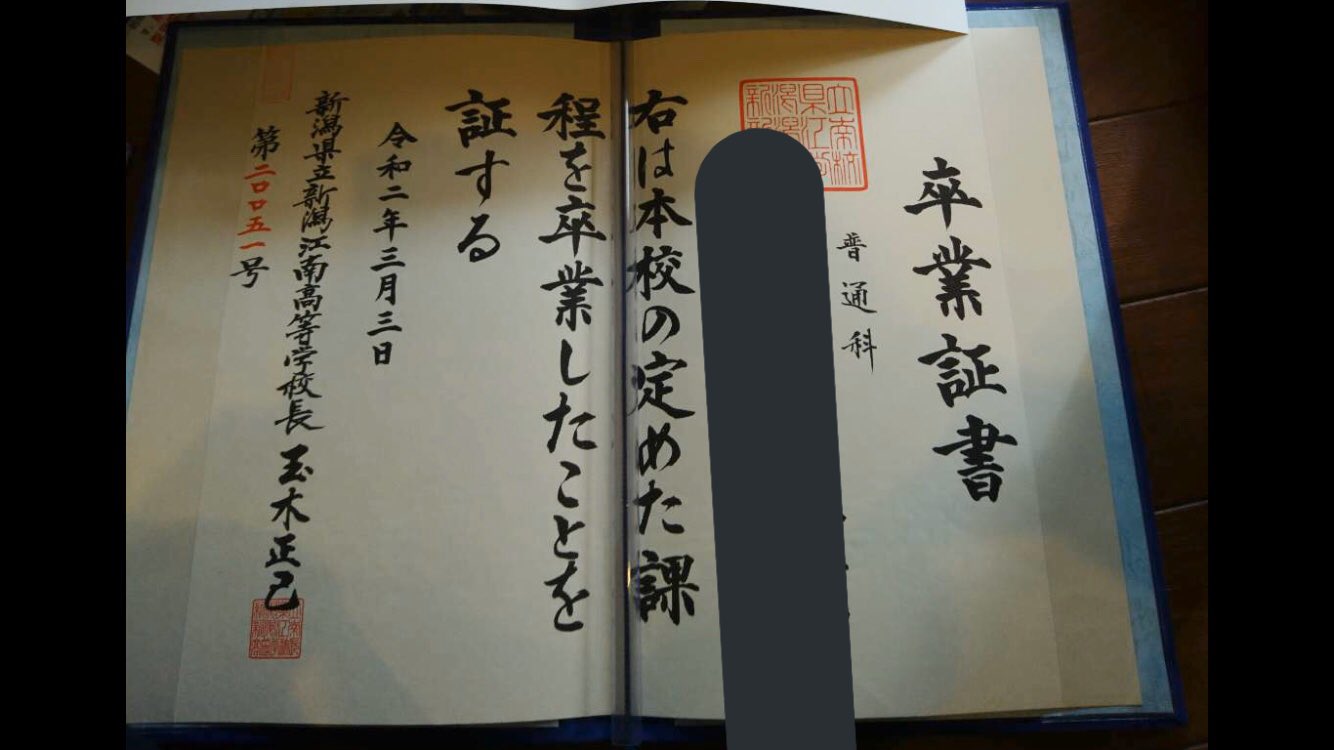 卒業証書
普通科
右は本校の定めた課
程を卒業したことを
証する
令和二年三月三日
新潟県立新潟江南高等学校長 玉木正己
第二〇〇五一号